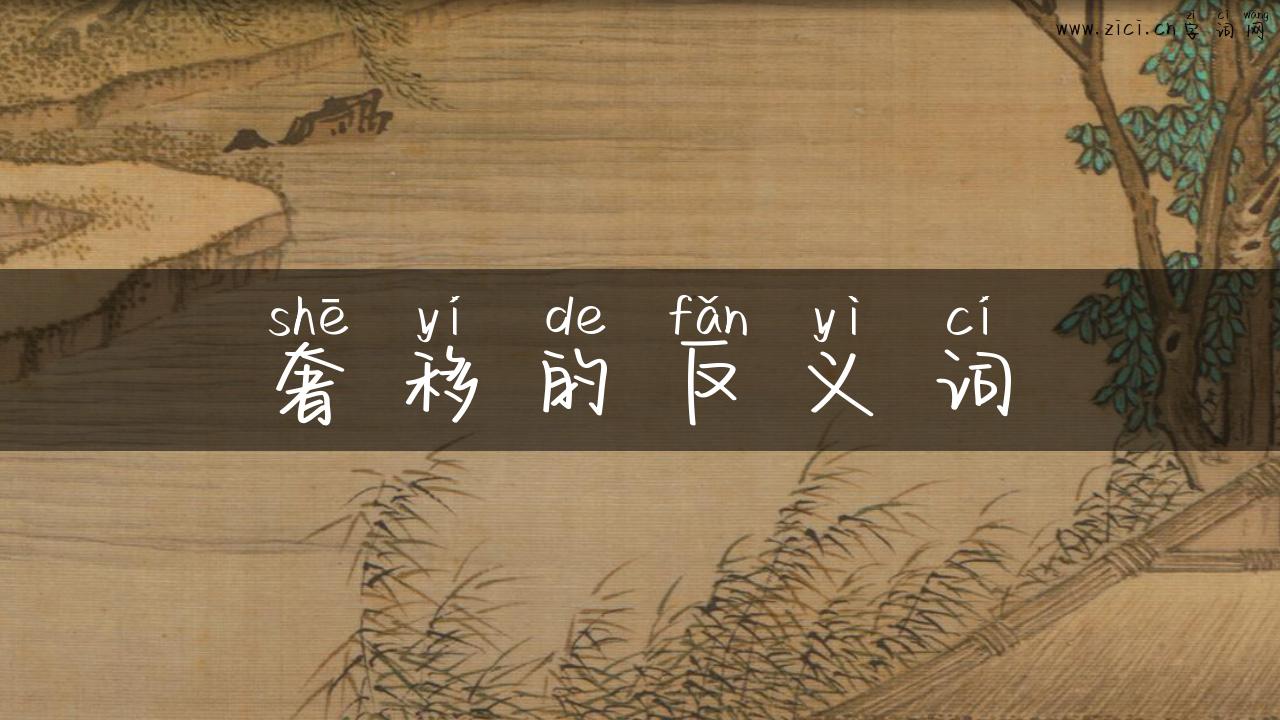 zì cí wǎng
www.zici.cn字词网
shē yí de fǎn yì cí
奢移的反义词